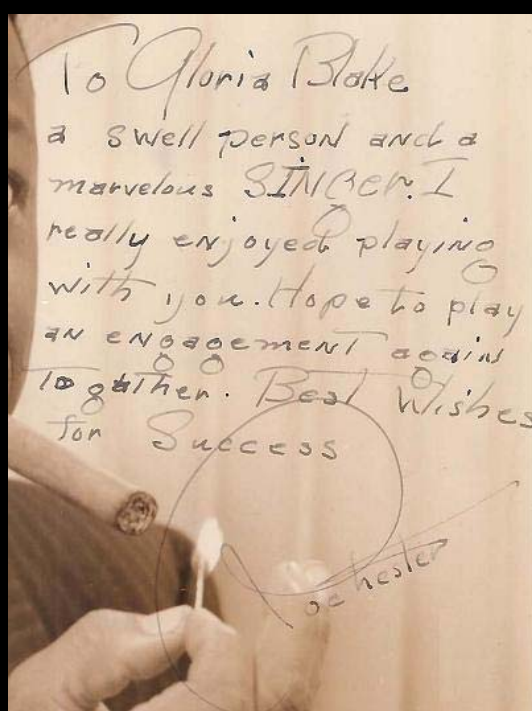 To Gloria Blake
a swell person and a
marvelous SINGER. I
really enjoyed playing
with you. Hope to play
an engagement again
together. Best Wishes
for Success
Rochester